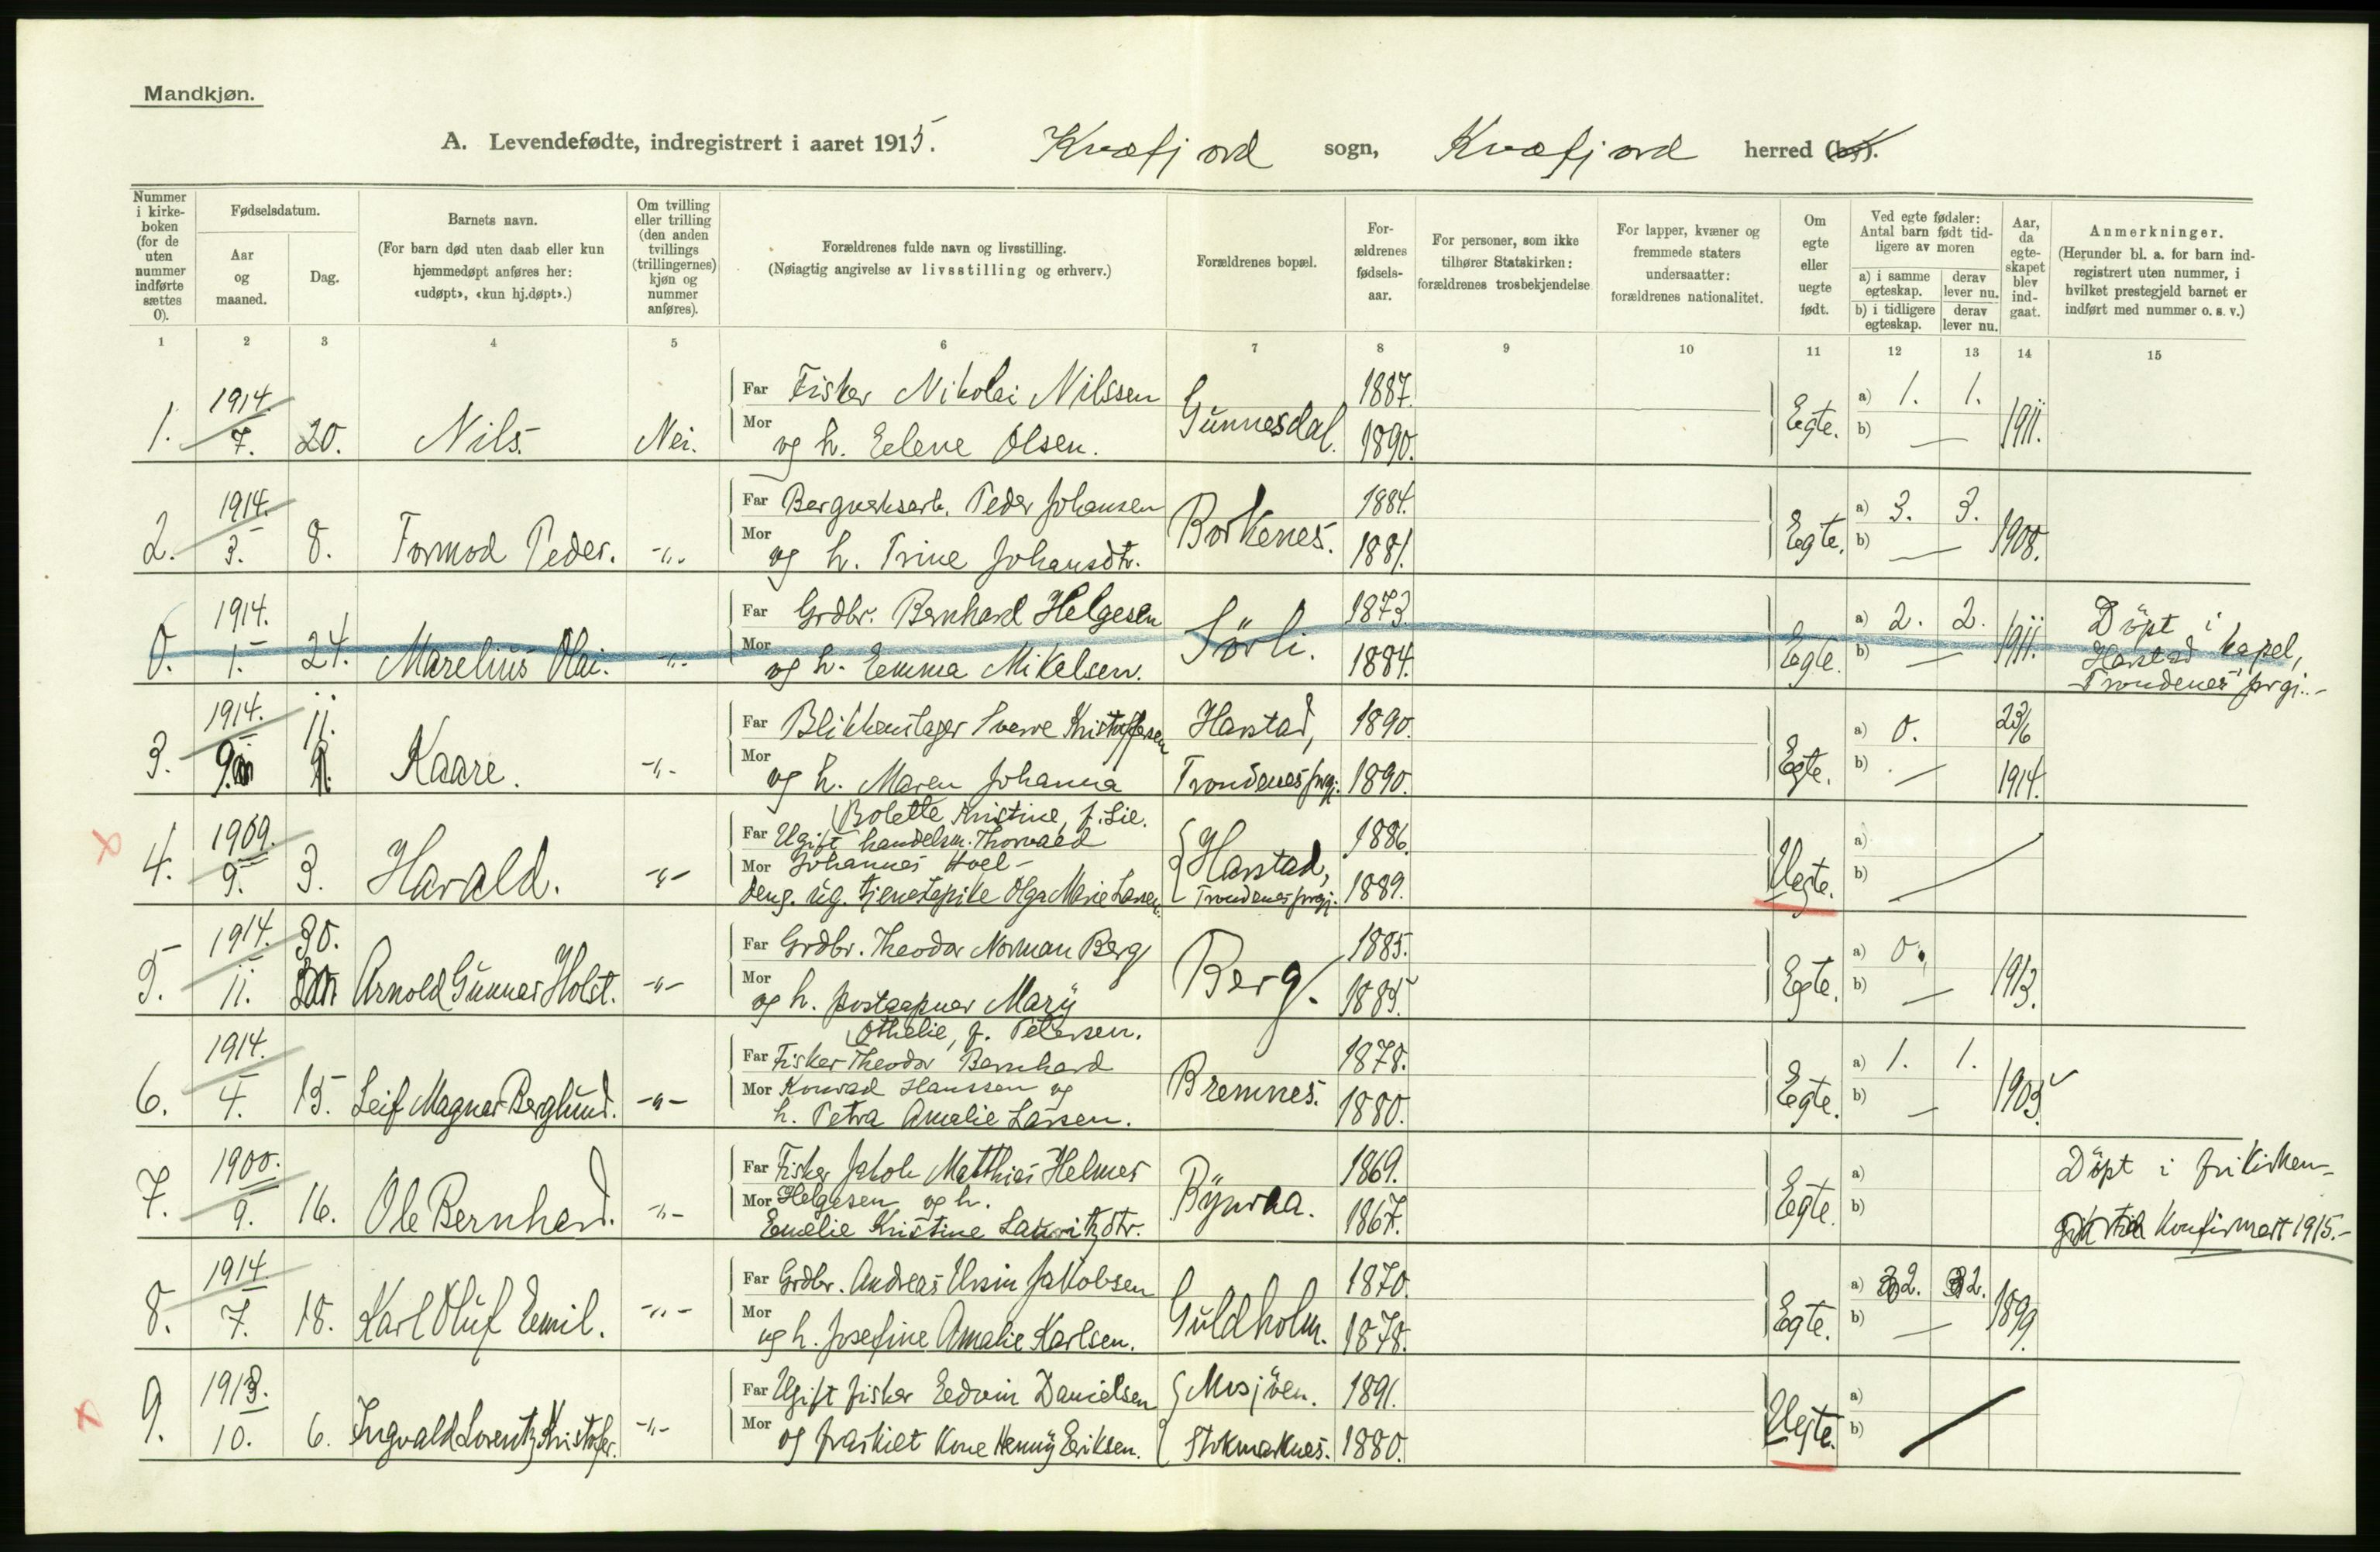 Mandkjøn.
A. Levendefødte, indregistrert i aaret 1915. Kvæfjord sogn, Kvæfjord herred (by).
Nummer i kirkeboken (for de uten nummer indførte sættes 0).
Fødselsdatum.
Aar og maaned.
Dag.
Barnets navn.
(For barn død uten daab eller kun hjemmedøpt anføres her: «udøpt», «kun hj.døpt».)
Om tvilling eller trilling (den anden tvillings (trillingernes) kjøn og nummer anføres).
Forældrenes fulde navn og livsstilling.
(Nøiagtig angivelse av livsstilling og erhverv.)
Forældrenes bopæl.
Forældrenes fødselsaar.
For personer, som ikke tilhører Statskirken: forældrenes trosbekjendelse
For lapper, kvæner og fremmede staters undersaatter: forældrenes nationalitet.
Om egte eller uegte født.
Ved egte fødsler: Antal barn født tidligere av moren
a) i samme egteskap. derav lever nu.
b) i tidligere egteskap. derav lever nu.
Aar, da egteskapet blev indgaat.
Anmerkninger.
(Herunder bl. a. for barn indregistrert uten nummer, i hvilket prestegjeld barnet er indført med nummer o. s. v.)
1 2 3 4 5 6 7 8 9 10 11 12 13 14 15
1. 1914. 7. 20. Nils. Nei. Far Fisker Nikolai Nilssen Gunnesdal. 1887. Egte. a) 1. 1. 1911.
Mor og h. Eelene Olsen. 1890. b) —
2. 1914. 3. 8. Tormod Peder. -"- Far Bergverksarb. Peder Johansen Borkenes. 1884. Egte. a) 3. 3. 1908.
Mor og h. Trine Johansdtr. 1881. b) —
0. 1914. 1. 24. Marelius Olai. -"- Far Grdbr. Bernhard Helgesen Sörli. 1873. Egte. a) 2. 2. 1911. Döpt i
Mor og h. Eemma Mikelsen. 1884. b) — Harstad kapel,
Trondenes prgj.-
3. 1914. 9. 11. Kaare. -"- Far Blikkenslager Sverre Kristoffersen Harstad, 1890. Egte. a) 0. 23/6
Mor og h. Maren Johanna Trondenes prgj. 1890. b) — 1914.
Bolette Kristine, f. Lie.
4. 1909. 9. 3. Harald. -"- Far Ugift handelsm. Thorvald Harstad, 1886. Uegte. a)
Mor Johannes Hoel - Trondenes prgj. 1889. b)
deng. ug. tjenestepike Olga Marie Larsen.
5. 1914. 11. 30. Arnold Gunnar Holst. -"- Far Grdbr. Theodor Norman Berg Berg. 1885. Egte. a) 0. 1913.
Mor og h. postaapner Mary 1885. b) —
Othelie, f. Petersen.
6. 1914. 4. 15. Leif Magnar Berglund. -"- Far Fisker Theodor Bernhard Bremnes. 1878. Egte. a) 1. 1. 1905.
Mor Konrad Hanssen og 1880. b) —
h. Petra Amalie Larsen.
7. 1900. 9. 16. Ole Bernhard. -"- Far Fisker Jakob Matthias Helmer 1869. Egte. a) Döpt i frikirken-
Mor Helgesen og h. 1867. b)
Emelie Kristine Lauritzdtr. Konfirmert 1915.-
8. 1914. 7. 18. Karl Oluf Eemil. -"- Far Grdbr. Andreas Ursin Jakobsen Guldholm. 1870. Egte. a) 2. 2. 1899.
Mor og h. Josefine Amalie Karlsen. 1878. b) —
9. 1913. 10. 6. Ingvald Lorentz Kristofer. -"- Far Ugift fisker Eedvin Danielsen Mosjöen. 1891. Uegte. a)
Mor og fraskilt kone Henny Eeriksen. Stokmarknes. 1880. b)